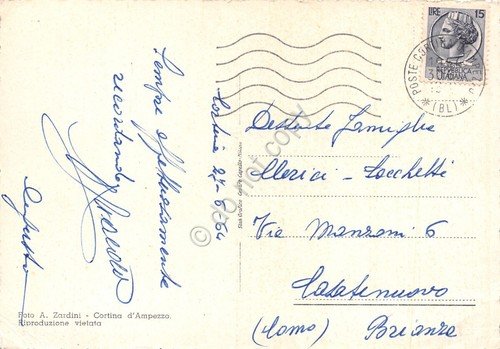 LIRE 15
REPUBBLICA
ITALIANA
POSTE CO
*(BL)*
Sempre affettuosamente
ricordando
Cortina 24-6-64
Distinta Famiglia
Clerici - Sacchetti
Via Manzoni 6
Casatenuovo
(Como) Brianza
Foto A. Zardini - Cortina d'Ampezzo.
Riproduzione vietata
do not copy